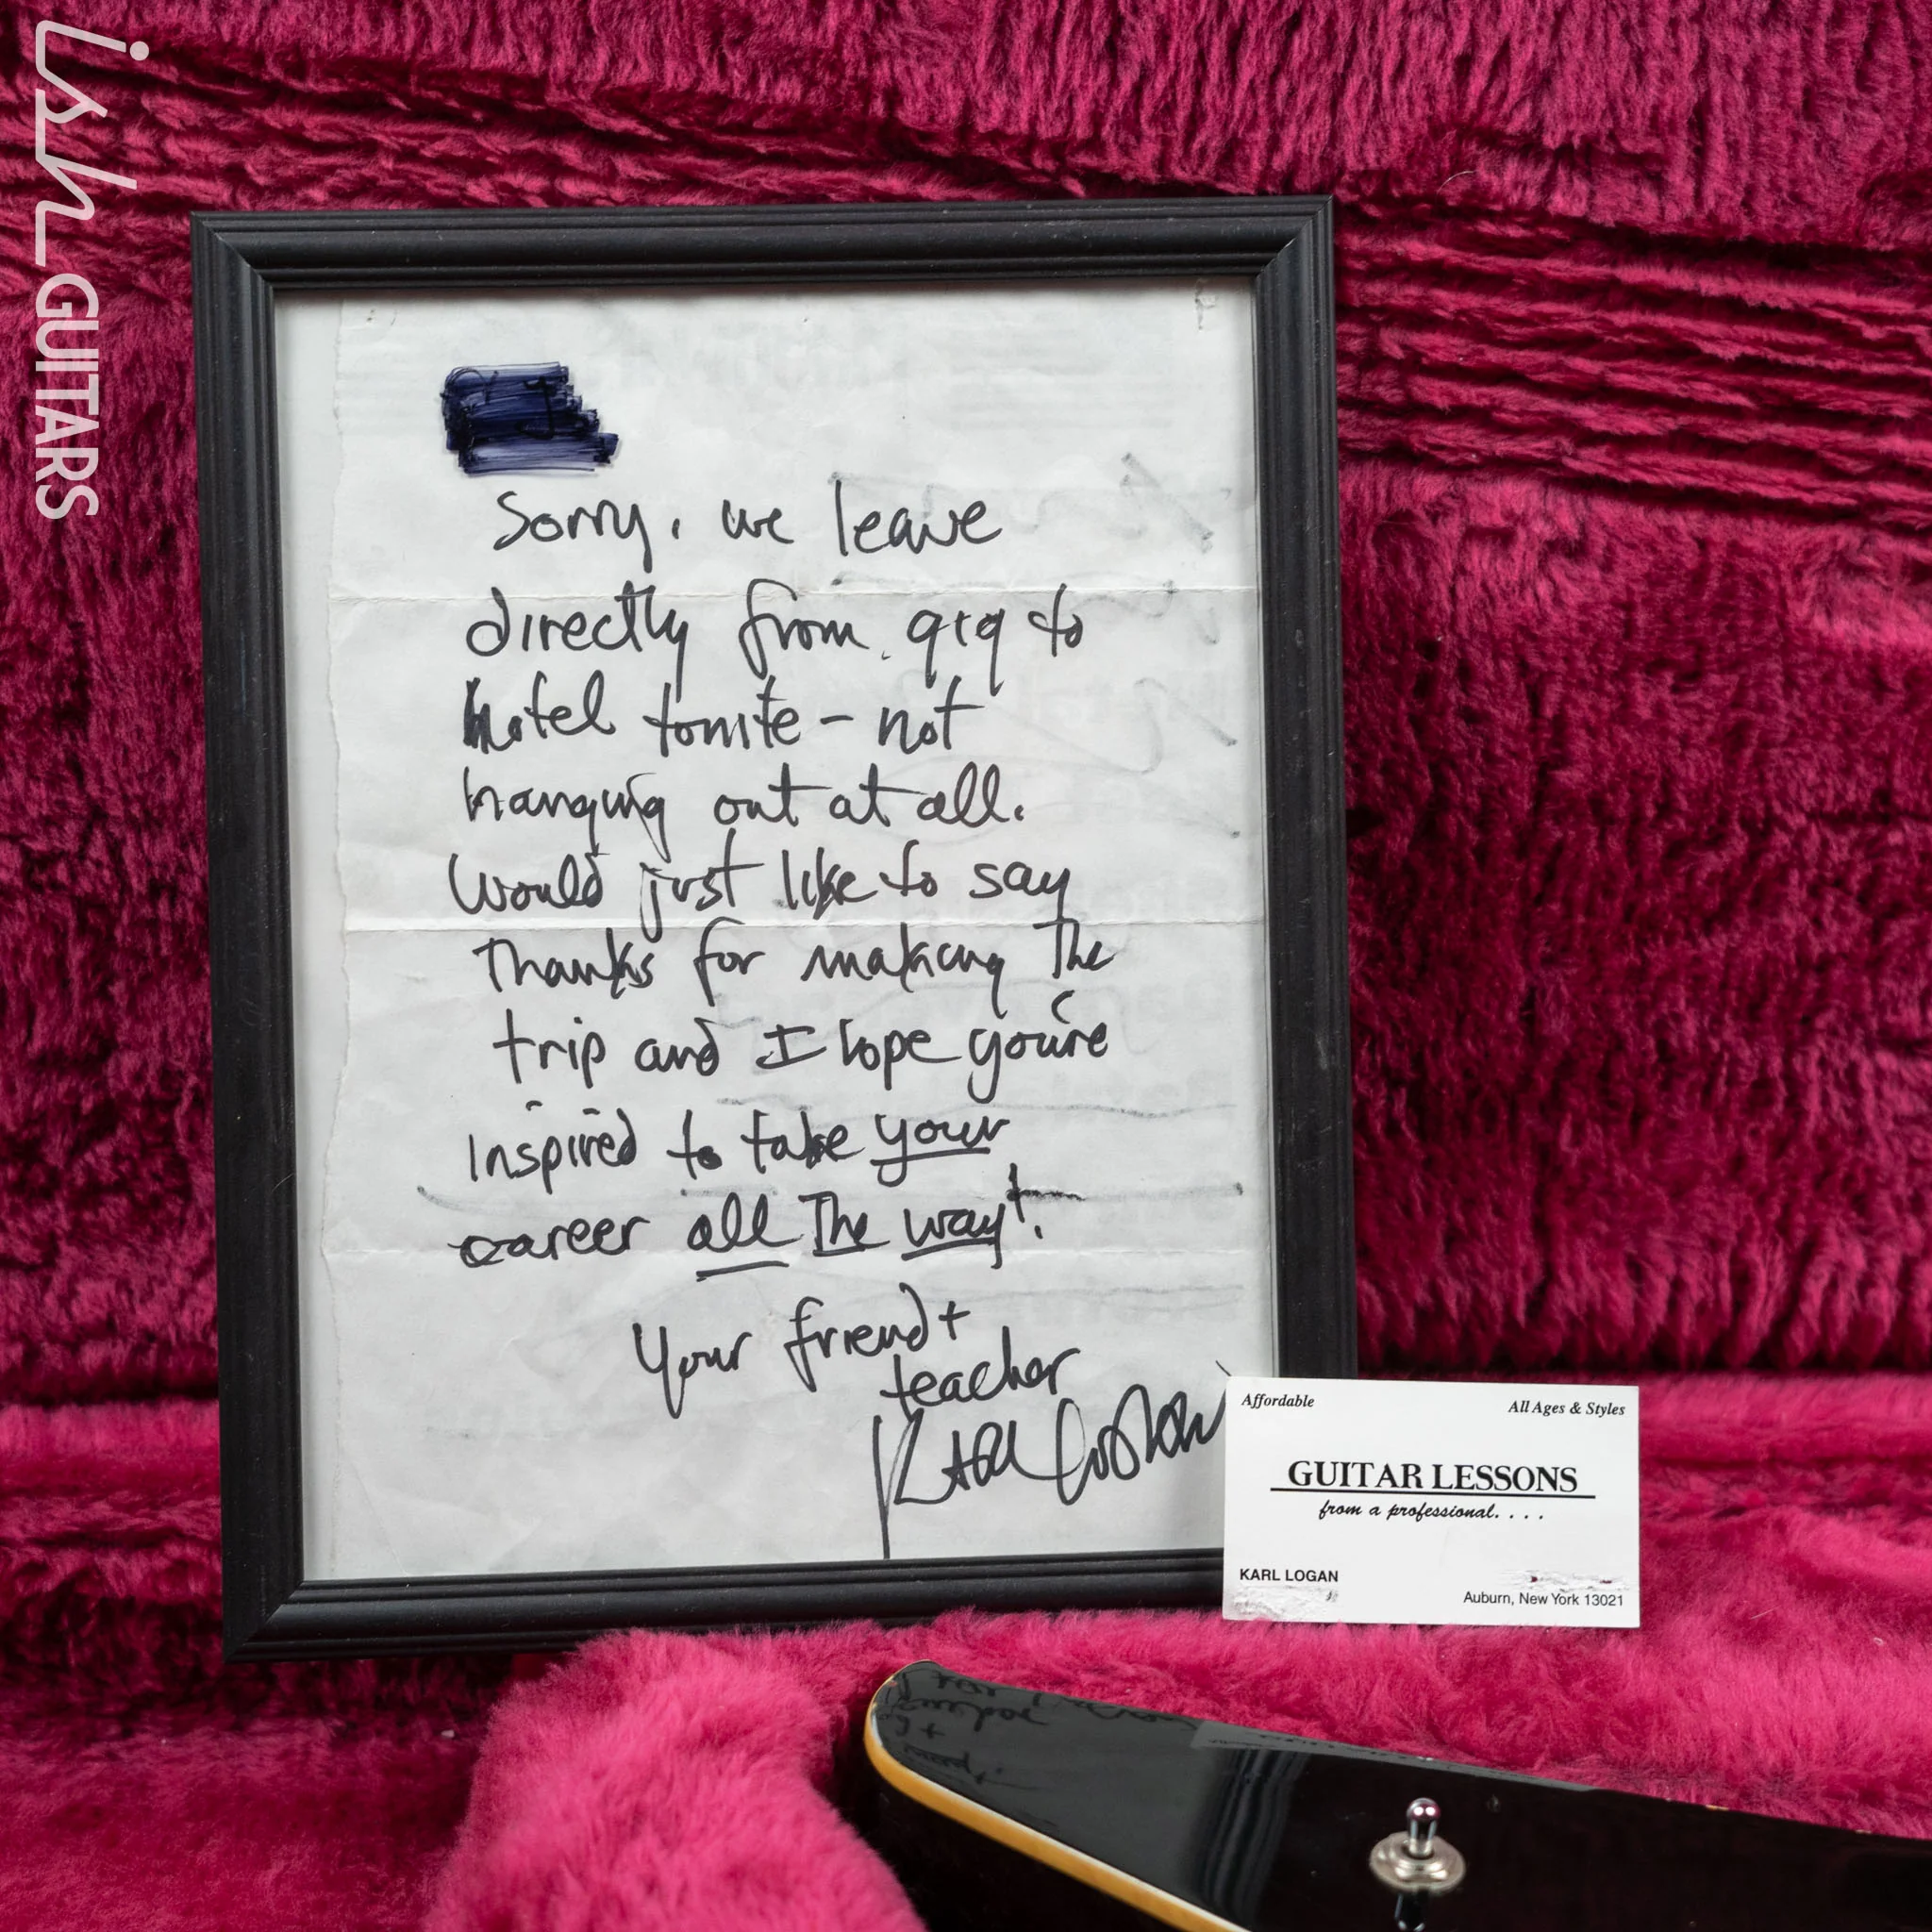 ish GUITARS
Sorry, we leave
directly from gig to
hotel tonite - not
hanging out at all.
Would just like to say
Thanks for making The
trip and I hope you're
inspired to take your
career all The way!
Your friend +
teacher
Karl Logan
Affordable
All Ages & Styles
GUITAR LESSONS
from a professional. . . .
KARL LOGAN
Auburn, New York 13021